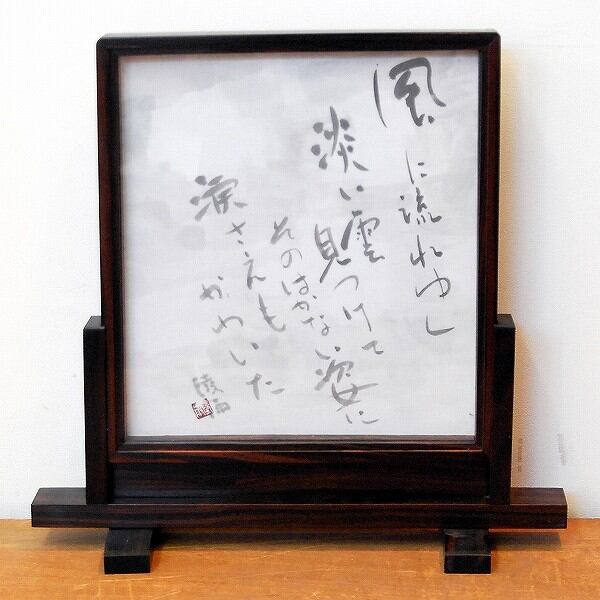 風に流れゆし
淡い雲
見つけて
そのはかない姿に
涙さえも
かわいた